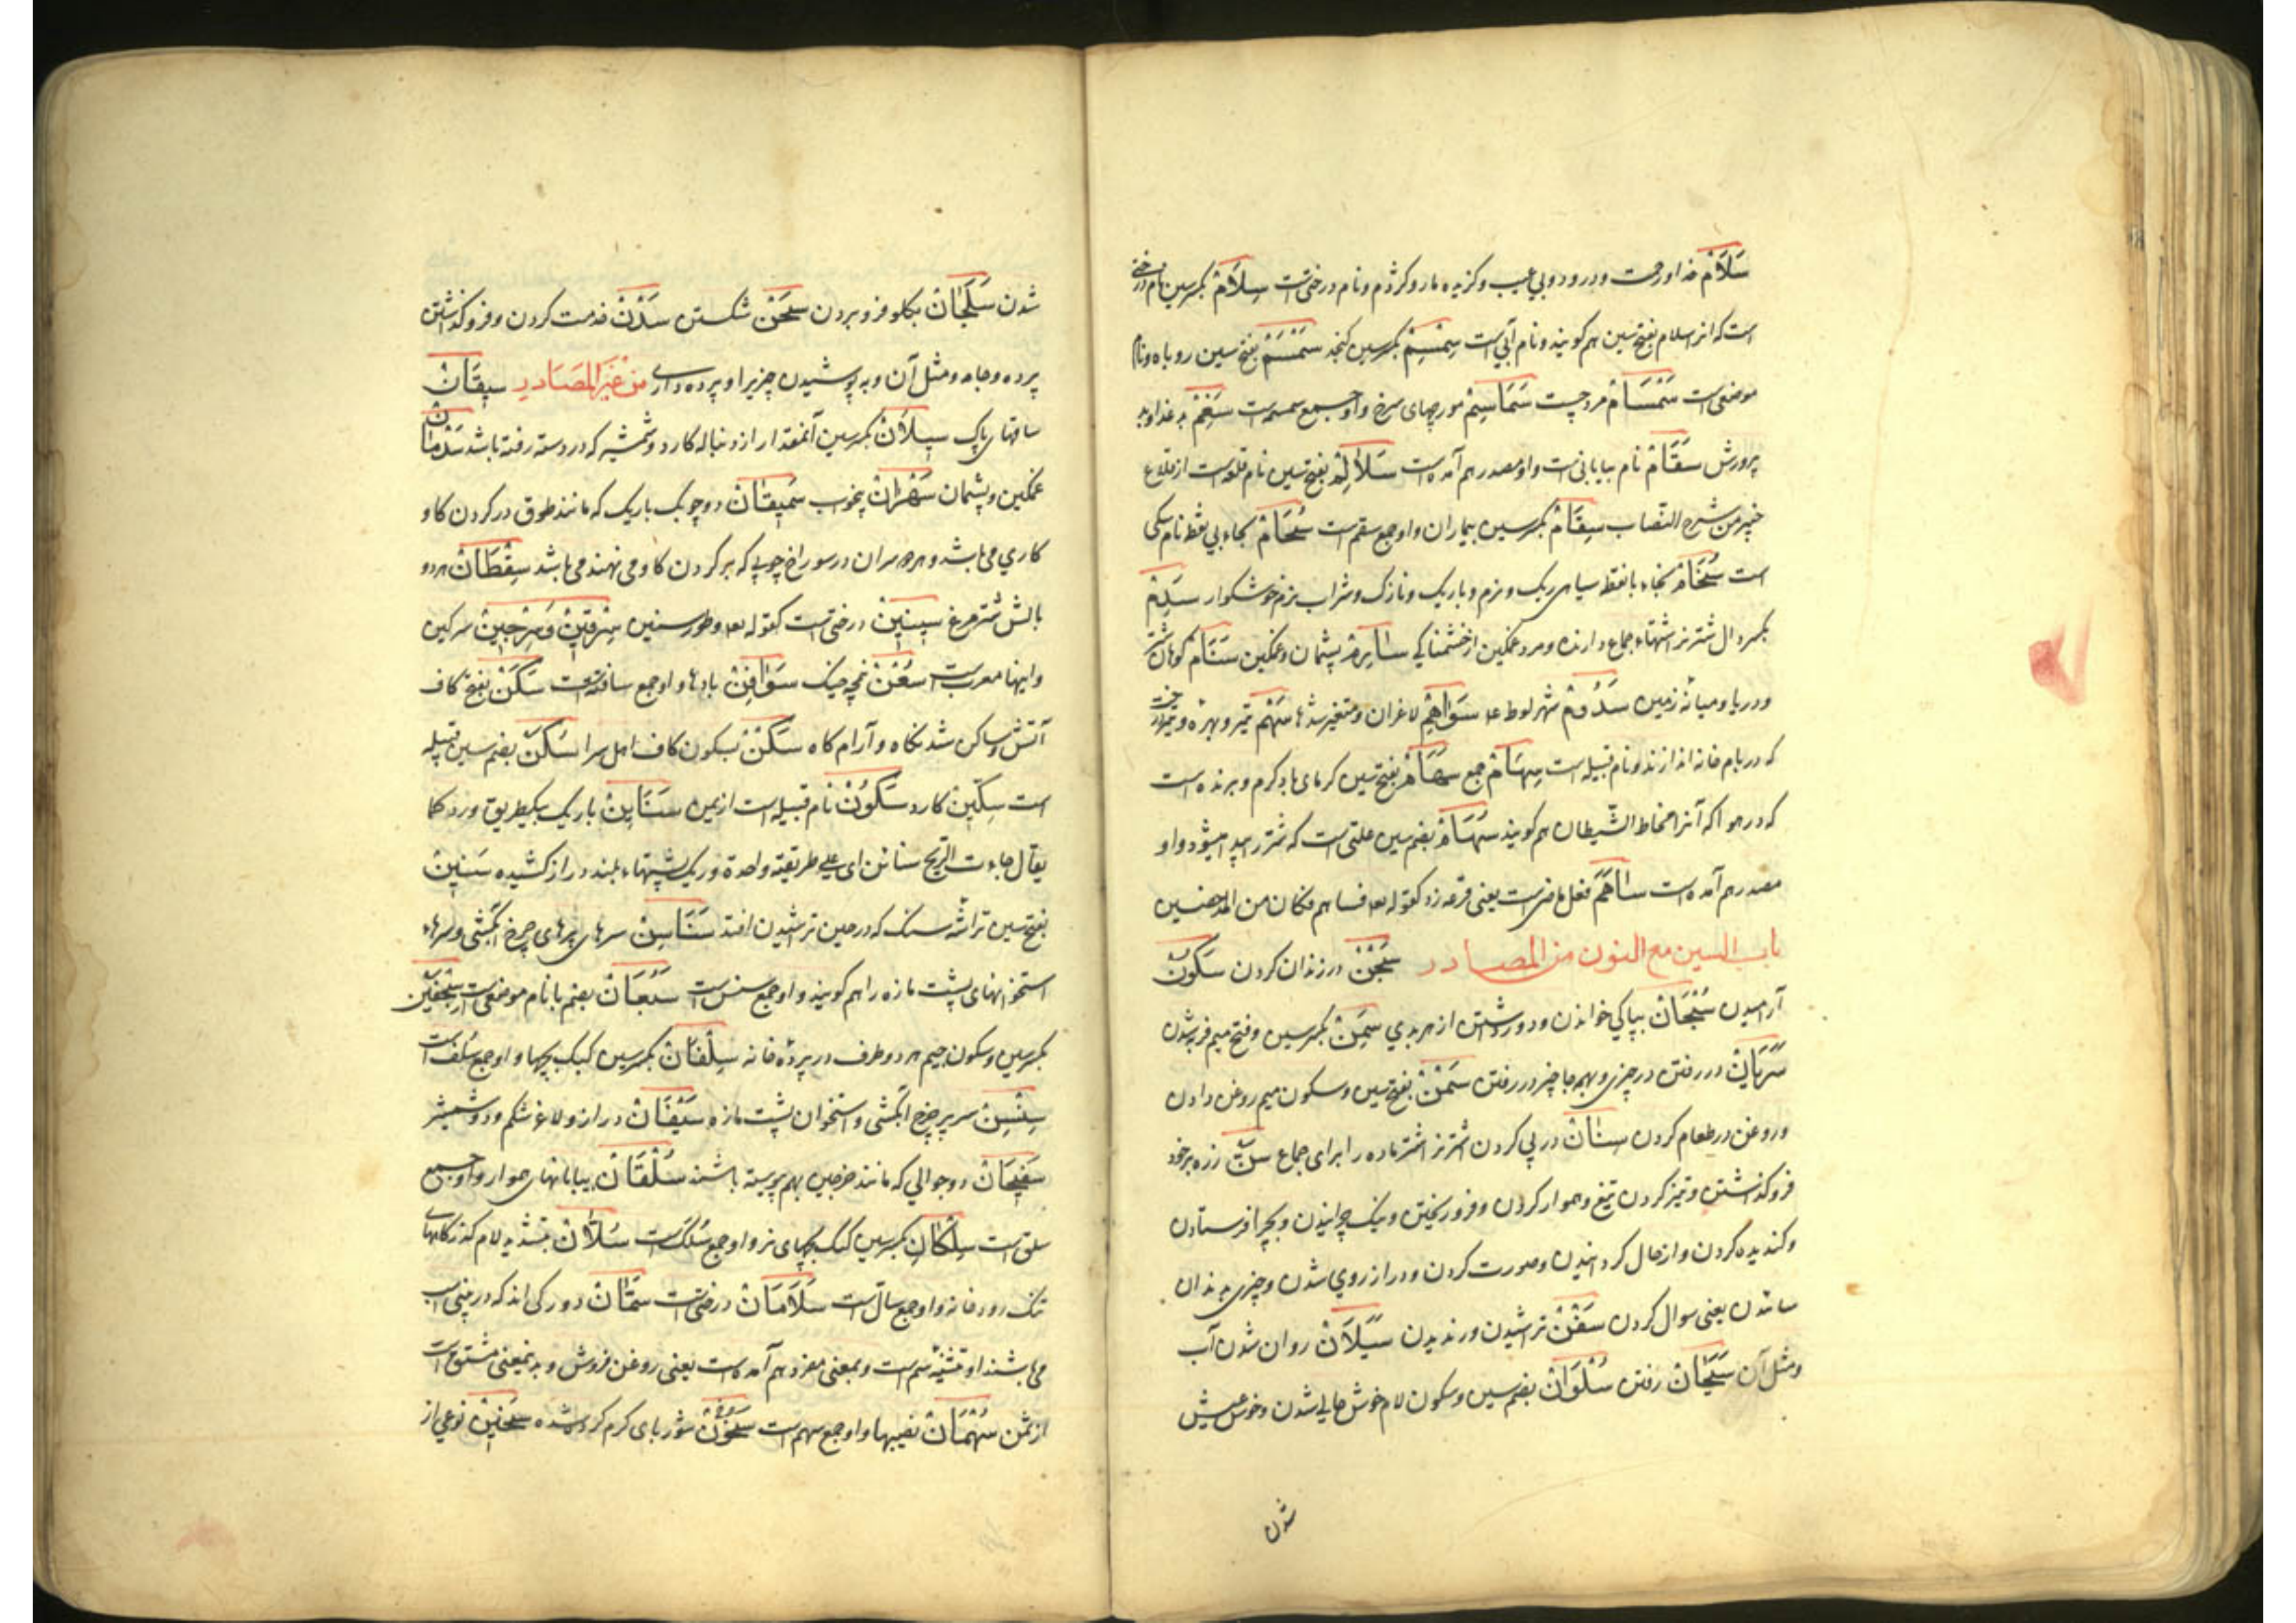 سَلَامْ خداوند است و درود و بی عیب و گزیده مار و کژدم و نام درختی است سِلَامْ بکسر سین نام درختی
است که انرا سلام بفتح سین هم گویند و نام آبی است سِمْسِمْ بکسر سین کنجد سَمْسَمْ بفتح سین روباه و نام
موضعی است سَمْسَامْ مرد چست سَمَاسِمْ مورچهای سرخ و او جمع سمسمه است
پرورش سَقَامْ نام بیابانی است و او مصدر هم آمده است سَلَالِمْ بفتح سین نام قلعه است از قلاع
خیبر من شرح النصاب سِقَامْ بکسر سین بیماران و او جمع سقم است سُحَامْ بحاء بی نقطه نام سکی
است سُخَامْ بخاء با نقطه سیاهی ریک و نرم و باریک و نازک و شراب نرم خوشکوار سَدِمْ
بکسر دال شتر نر اشتهاء جماع دارنده و مرد غمکین از خشمناکی پشیمان و غمکین سَنَامْ کوهان شتر
و دریا و میانه زمین سَدُومْ شهر لوط عد سَوَاهِمْ لاغران و متغیر شدها سَهْمْ تیر و بهره و
که در بام خانه اندازند و نام قبیله است سِهَامْ جمع سَهَامْ بفتح سین کرمای باد کرم و برنده است
که در هوا که آنرا مخاط الشیطان هم کویند سُهَامْ بضم سین علتی است که شتر را پید میشود و او
مصدر هم آمده است سَاهَمَ فعل ماضی است یعنی قرعه زد کقوله تعه فساهم فکان من المدحضین
باب السین مع النون من المصادر سَجْنْ در زندان کردن سُکُونْ
آرامیدن سُبْحَانْ بپاکی خواندن و دور داشتن از هر بدی سِمَنْ بکسر سین و فتح میم فربه شدن
سَرَیَانْ در رفتن در چیزی و بهمه جا چیز در رفتن سَمْنْ بفتح سین و سکون میم روغن دادن
و روغن در طعام کردن سِنَانْ در پی کردن اشتر نر اشتر ماده را برای جماع سَنّ زره بر خود
فرو کذاشتن و تیز کردن تیغ و هموار کردن و فرو ریختن و نیک چرانیدن و بچرا فرستادن
و کندیده کردن و از حال کردانیدن و صورت کردن و دراز روی شدن و چیزی بدندان
سائدن یعنی سوال کردن سَفْنْ تراشیدن و رندیدن سَیَلَانْ روان شدن آب
و مثل آن سَیَحَانْ رفتن سُلْوَانْ بضم سین و سکون لام خوش حالی شدن و خوش عیش
شدن
شدن سَلَجَانْ بکلو فرو بردن سَحْنْ شکستن سَدْنْ خدمت کردن و فرو کذاشتن
پرده و جامه و مثل آن و به پوشیدن چیزیرا و پرده داری من غیر المصادر سِیقَانْ
ساقهای پاک سِیلَانْ بکسر سین آنمقدار از دنباله کارد و شمشیر که در دسته رفته باشد سَدْمَانْ
غمکین و پشیمان سَهْرَانْ بیخواب سَمِیقَانْ دو چوبک باریک که مانند طوق در کردن کاو
کاری می باشد و هر دو سر آن در سوراخ چوبی که بر کردن کاو می نهند می باشد سِقْطَانْ هر دو
بالش شترمرغ سِینِینْ درختی است کقوله تعه و طور سینین سِرْقِینْ وَ سِرْجِینْ سرکین
و اینها معرب است سُعْنْ سَوَافِنْ بادها و او جمع سافنه است سَکَنْ بفتح کاف
آتش و ساکن شدنکاه و آرام کاه سَکْنْ بسکون کاف اهل سرا سُکَنْ بضم سین قبیله
است سِکِّینْ کارد سَکُونْ نام قبیله است از یمن سَنَایِنْ باریک بیکطریق وزد کما
یقال جاءت الریح سنائن ای علی طریقة واحدة و ریک پشتهاء بلند دراز کشیده سَنِینْ
بفتح سین تراشه سنک که در حین تراشیدن افتد سَنَاسِنْ سرهای پرهای چرخ آبکشی و سرهاء
استخوانهای پشت مازه را هم کویند و او جمع سنسن است سَبُعَانْ بضم با نام موضعی است سِجْفَیْن
بکسر سین و سکون جیم هر دو طرف در پرده خانه سِلْفَانْ بکسر سین کبک بچها و او جمع سُلَف است
سِنْسِنْ سر پر چرخ آبکشی و استخوان پشت مازه سَیْفَانْ دراز و لاغر شکم و دو شمشیر
سَفِیحَانْ دو جوالی که مانند خرجین بهم پیوسته باشند سُلْقَانْ بیابانهای هموار و او جمع
سلق است سِلْکَانْ بکسر سین کبک بچهای نر و او جمع سُلَک است سُلَّانْ بتشدید لام کذرکاهای
تنک رودخانه و او جمع سالّ است سَلَامَانْ درختی است سَمَّانْ دو رکی اند که در بینی اسب
می باشند او تثنیه سم است و بمعنی مفرد هم آمده است یعنی روغن فروش و بدینمعنی مشتق است
از سمن سُهْمَانْ نصیبها و او جمع سهم است سُخُونْ شوربای کرم کرده شده سَخِینْ نوعی از